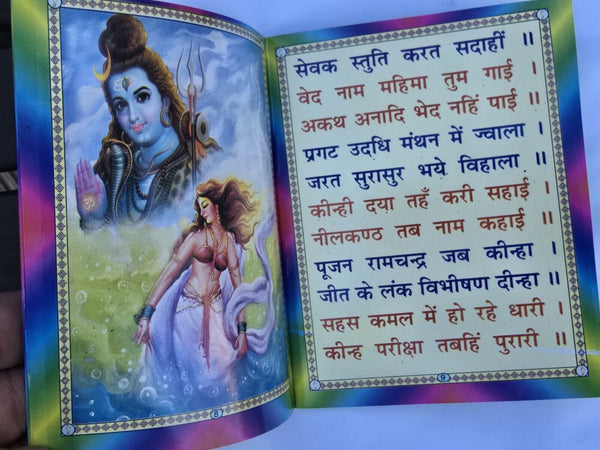 ॐ
8
सेवक स्तुति करत सदाहीं ॥
वेद नाम महिमा तुम गाई ।
अकथ अनादि भेद नहिं पाई ॥
प्रगट उदधि मंथन में ज्वाला ।
जरत सुरासुर भये विहाला ॥
कीन्ही दया तहँ करी सहाई ।
नीलकण्ठ तब नाम कहाई ॥
पूजन रामचन्द्र जब कीन्हा ।
जीत के लंक विभीषण दीन्हा ॥
सहस कमल में हो रहे धारी ।
कीन्ह परीक्षा तबहिं पुरारी ॥
9